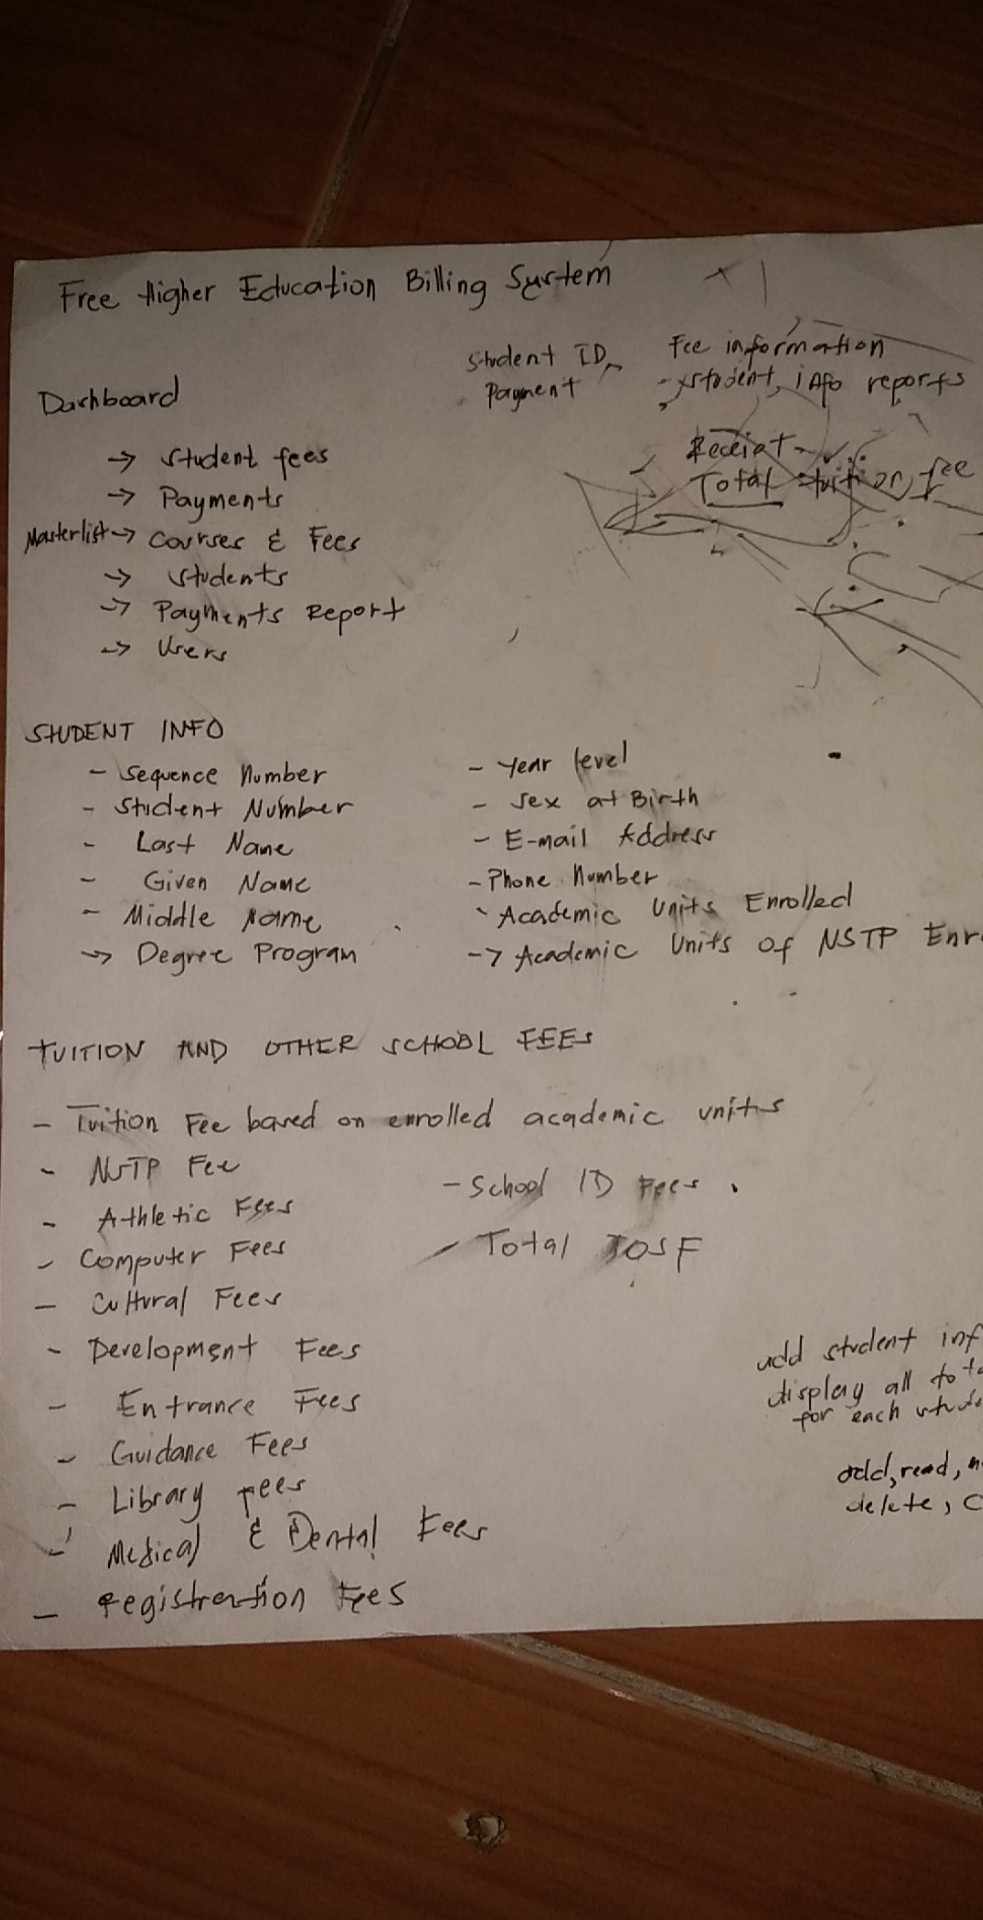 Free Higher Education Billing System
Student ID,
Payment
Fee information
student info reports
Receipt
Total tuition fee
Dashboard
→ Student fees
→ Payments
Masterlist → Courses & Fees
→ Students
→ Payments Report
→ Users
STUDENT INFO
- Sequence Number
- Student Number
- Last Name
- Given Name
- Middle Name
→ Degree Program
- Year level
- Sex at Birth
- E-mail Address
- Phone Number
- Academic Units Enrolled
→ Academic Units of NSTP Enr
TUITION AND OTHER SCHOOL FEES
- Tuition Fee based on enrolled academic units
- NSTP Fee
- Athletic Fees
- Computer Fees
- Cultural Fees
- Development Fees
- Entrance Fees
- Guidance Fees
- Library Fees
- Medical & Dental Fees
- Registration Fees
- School ID Fees
- Total TOSF
add student inf
display all
for each
add, read,
delete,